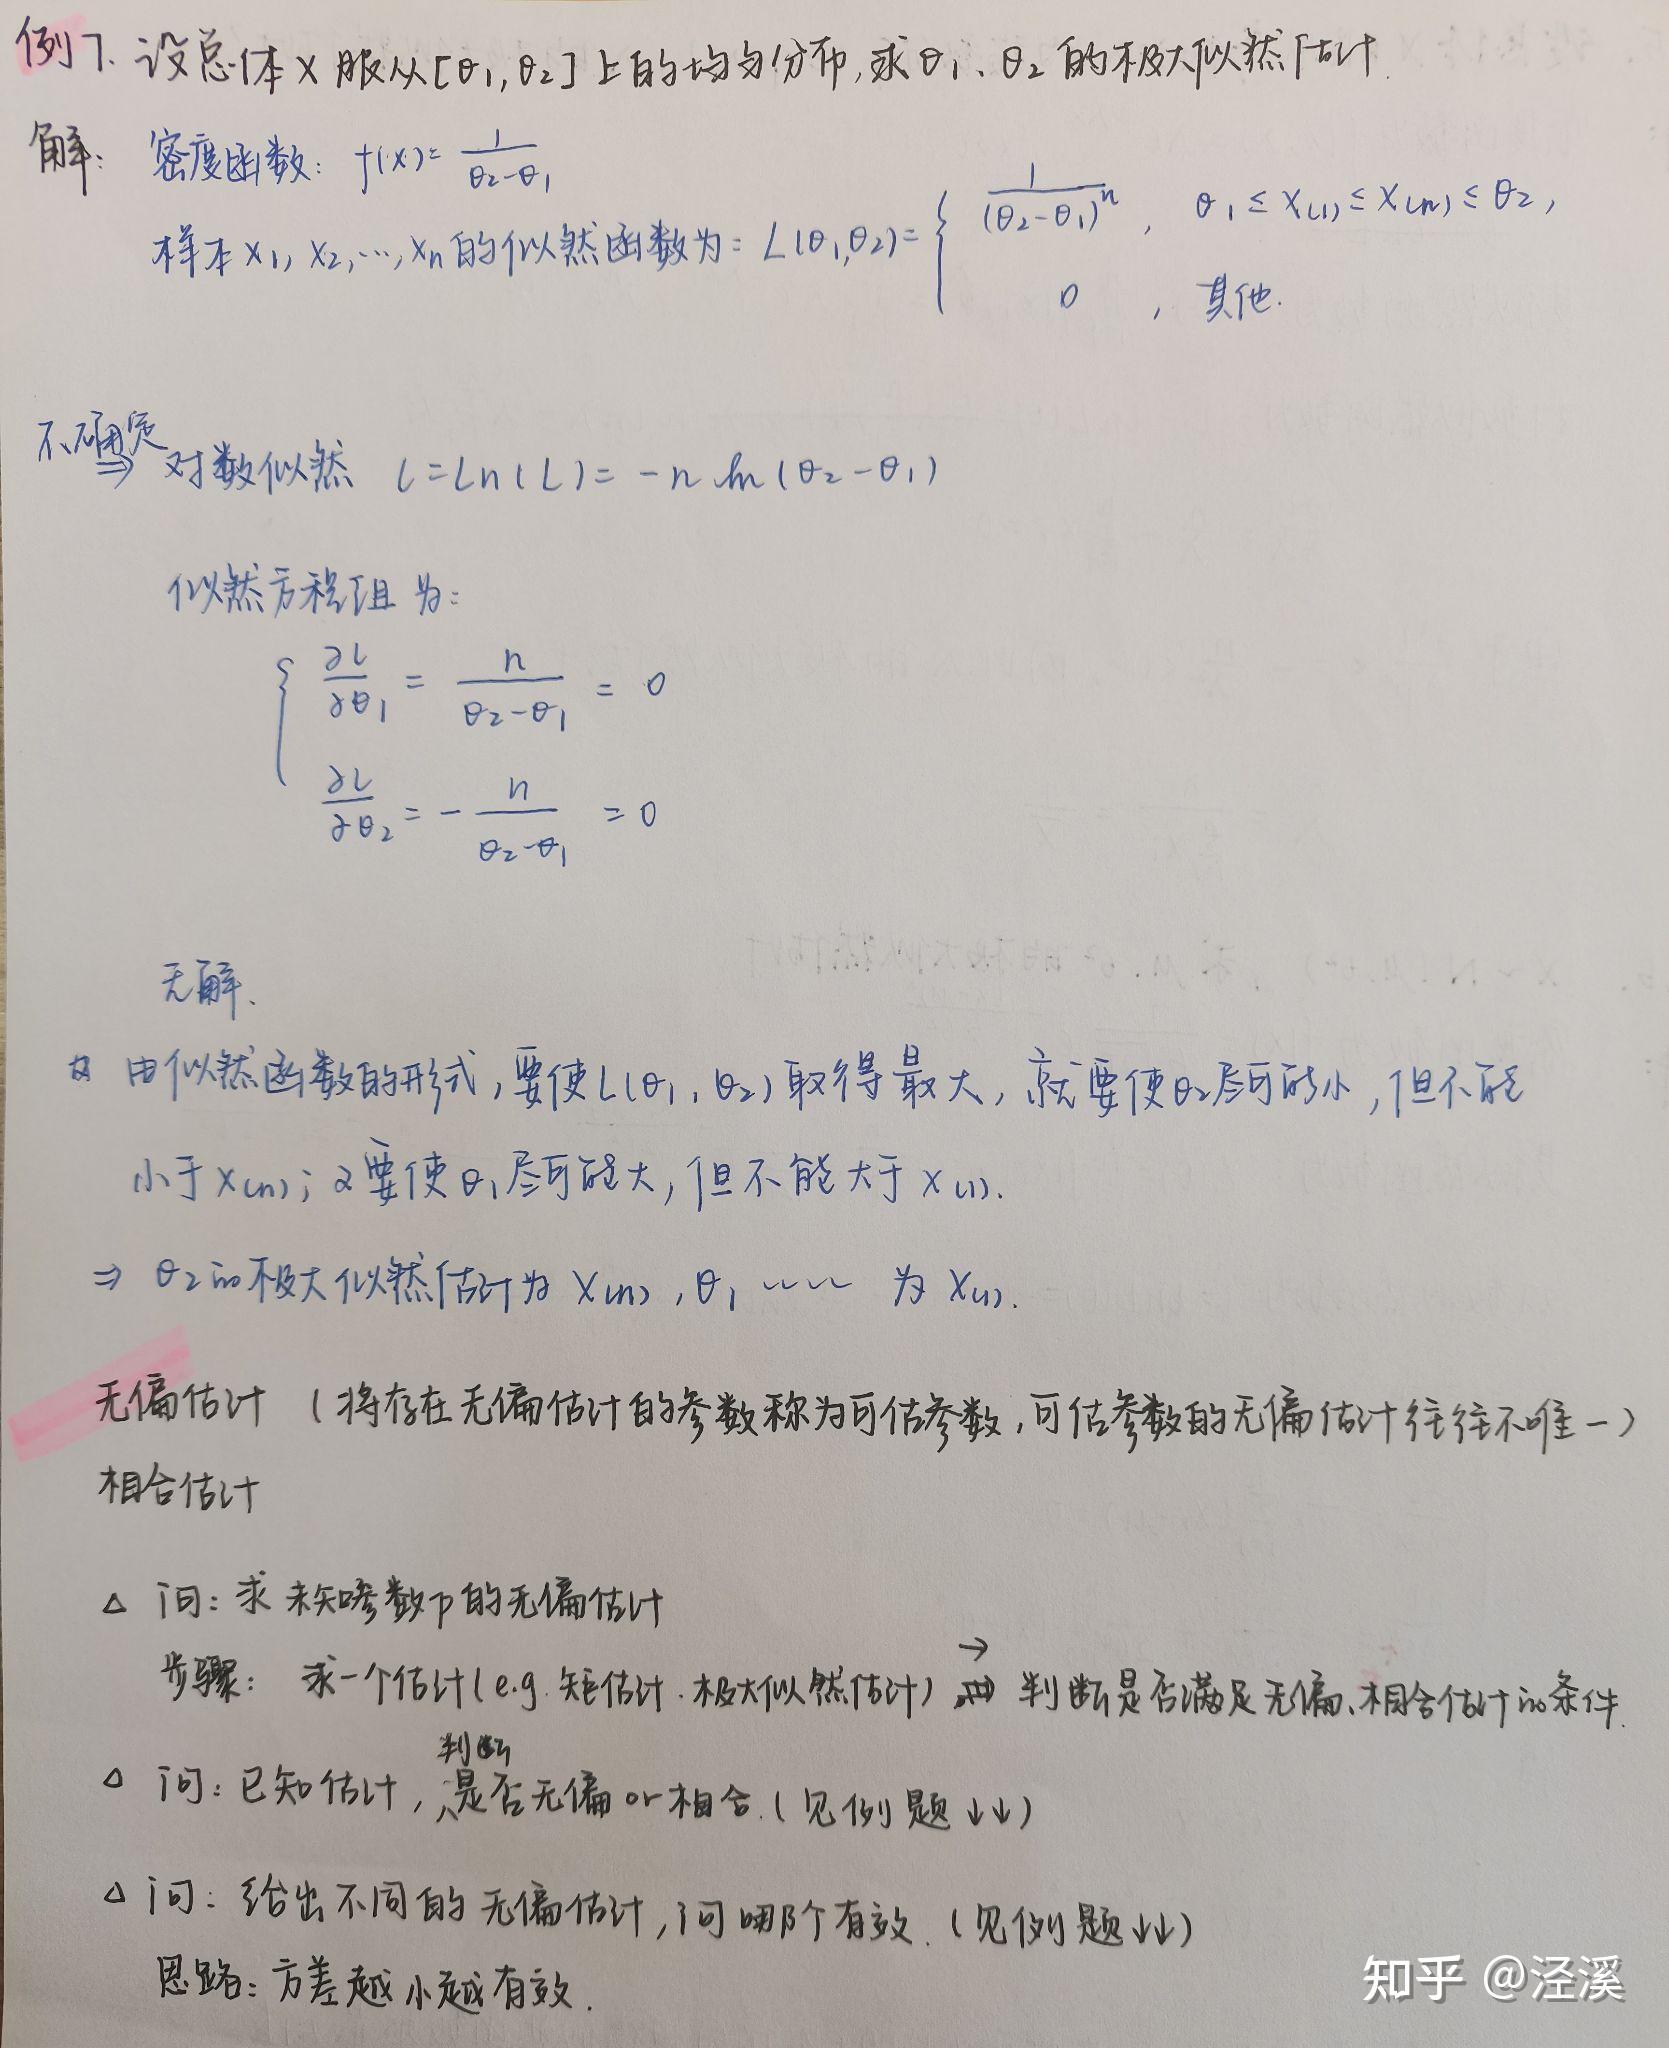 例7. 设总体X服从[θ₁,θ₂]上的均匀分布,求θ₁、θ₂的极大似然估计.
解: 密度函数: f(x)= 1/(θ₂-θ₁)
样本X₁, X₂,…,Xn的似然函数为: L(θ₁,θ₂)= { 1/(θ₂-θ₁)ⁿ , θ₁≤X(1)≤X(n)≤θ₂,
0 , 其他.
不确定
⇒ 对数似然 l=Ln(L)= -n ln(θ₂-θ₁)
似然方程组为:
{ ∂L/∂θ₁ = n/(θ₂-θ₁) = 0
∂L/∂θ₂ = - n/(θ₂-θ₁) = 0
无解.
由似然函数的形式,要使L(θ₁,θ₂)取得最大,就要使θ₂尽可能小,但不能
小于X(n);又要使θ₁尽可能大,但不能大于X(1).
⇒ θ₂的极大似然估计为X(n),θ₁ ~~~ 为X(1).
无偏估计 (将存在无偏估计的参数称为可估参数,可估参数的无偏估计往往不唯一)
相合估计
△ 问:求未知参数p的无偏估计
步骤: 求一个估计(e.g.矩估计.极大似然估计) → 判断是否满足无偏、相合估计的条件.
△ 问:已知估计,判断是否无偏or相合.(见例题↓↓)
△ 问: 给出不同的无偏估计,问哪个有效.(见例题↓↓)
思路: 方差越小越有效.
知乎 @泾溪